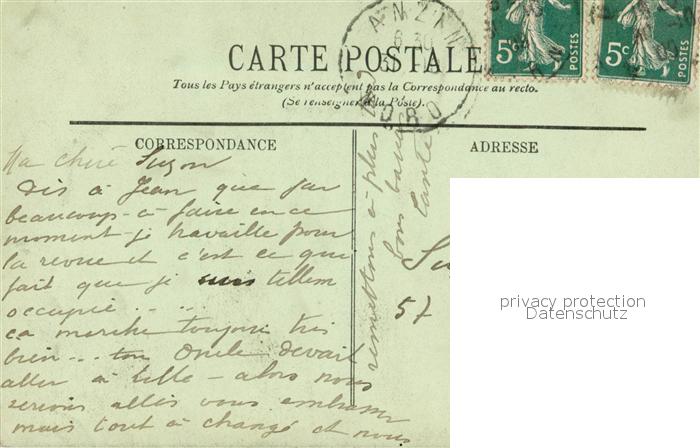 CARTE POSTALE
Tous les Pays étrangers n'acceptent pas la Correspondance au recto.
(Se renseigner à la Poste).
ANZIN
NORD
5c POSTES
5c POSTES
CORRESPONDANCE
ADRESSE
Ma chère Suzon
Dis à Jean que j'ai
beaucoup à faire en ce
moment - je travaille pour
la revue et c'est ce que
fait que je suis tellem
occupée ...
ça marche toujours très
bien ... ton Oncle devait
aller à Lille - alors nous
serions allés vous embrasser
mais tout à changé et nous
remettons à plus
bons baisers
Tante
Su
57
privacy protection
Datenschutz